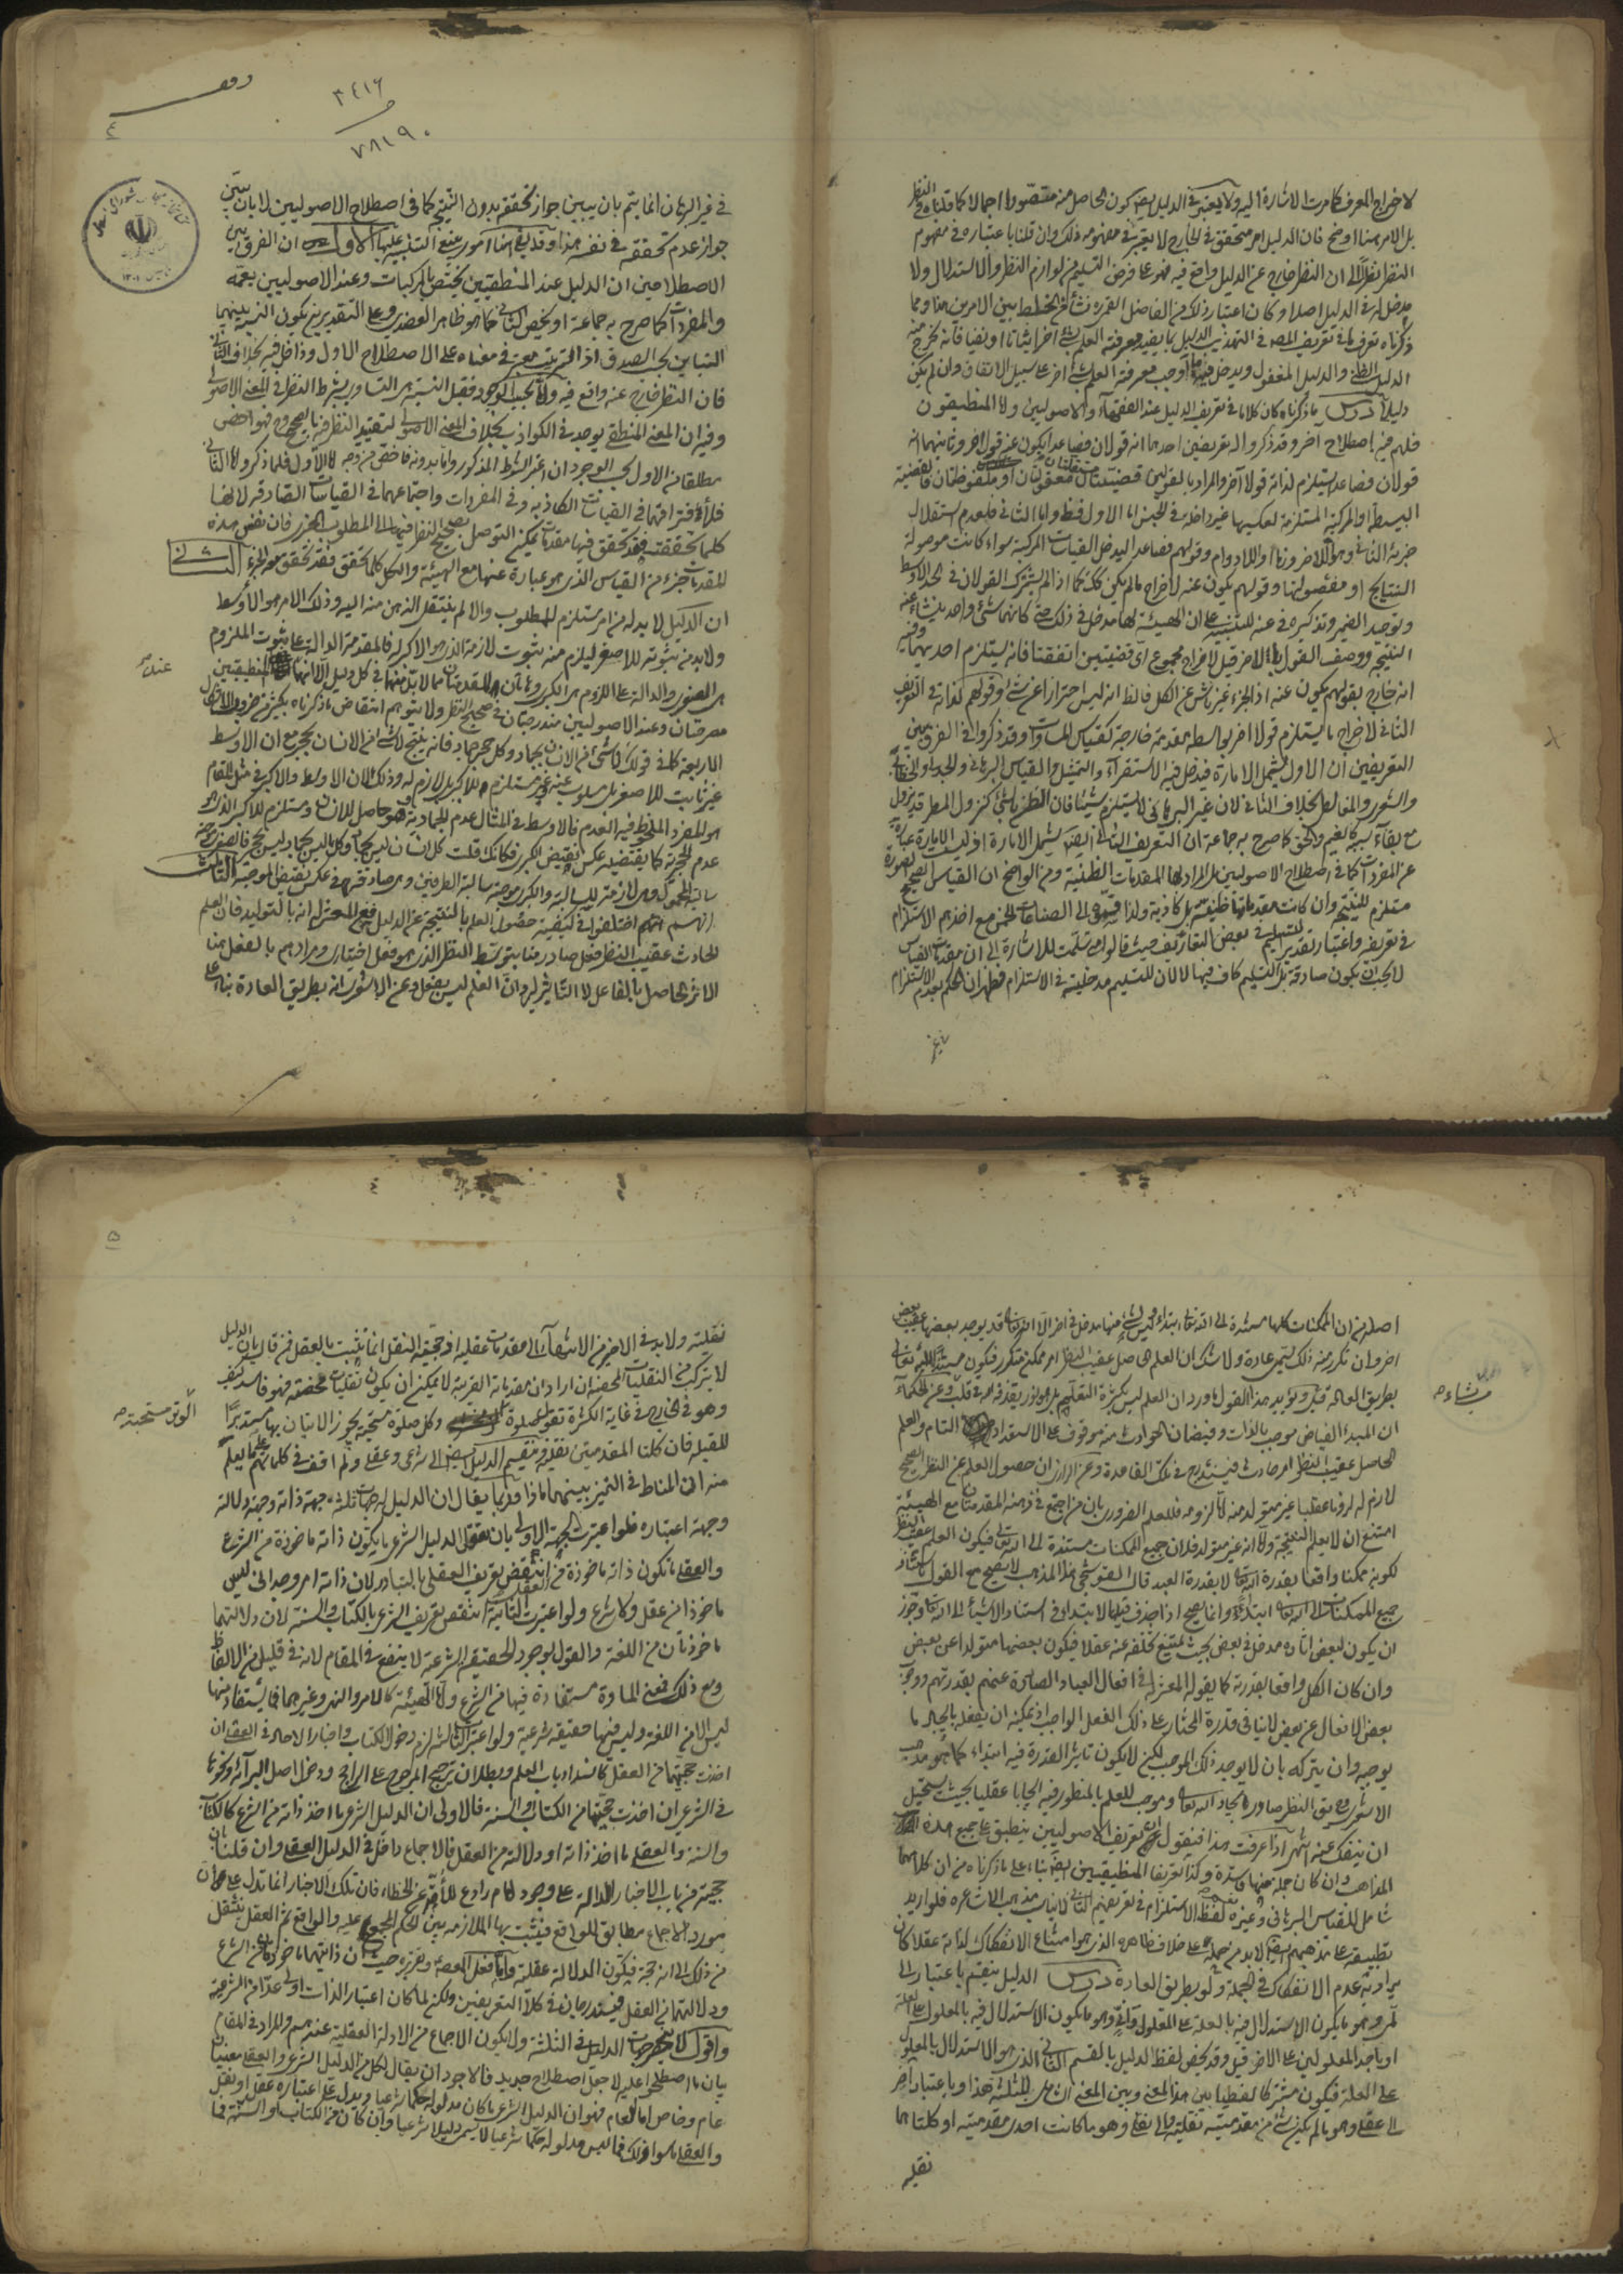 لاخراج المعرف كما مرت الاشارة اليه ولا يعتبر في الدليل ايضا كون الحاصل منه مقصورا اجمالا كما قلنا في النظر
بل الامر هنا اوضح فان الدليل امر متحقق في الخارج لا يعتبر في مفهومه ذلك وان قلنا باعتباره في مفهوم
النظر نظرا الى ان النظر خارج عن الدليل واقع فيه فهو على فرض التسليم من لوازم النظر والاستدلال ولا
مدخل له في الدليل اصلا وكان اعتبار ذلك من الفاضل نشأ من الخلط بين الامرين هنا ومما
ذكرناه تعرف ما في تعريف المص في التهذيب الدليل بما يفيد معرفته العلم بشئ اخر اثباتا او نفيا فانه يخرج منه
الدليل الظني والدليل المغفول ويدخل فيه ما اوجب معرفته العلم بشئ اخر على سبيل الاتفاق وان لم يكن
دليلا درس ما ذكرناه كان كلاما في تعريف الدليل عند الفقهاء والاصوليين ولا المنطقيون
فلهم فيه اصطلاح اخر وقد ذكروا له تعريفين احدهما انه قولان فصاعدا يكون عنه قول اخر وثانيهما انه
قولان فصاعدا يستلزم لذاته قولا آخر والمراد بالقولين قضيتان معقولتان او ملفوظتان فالقضية
البسيطة او المركبة المستلزمة لعكسيها غير داخلة في الجنس اما الاول فظ واما الثاني فلعدم استقلال
جزئه الثاني وهو اللاضرورة او اللادوام وقولهم فصاعدا ليدخل القياسات المركبة سواء كانت موصولة
النتايج او مفصولتها وقولهم يكون عنه لاخراج ما لم يكن كذلك كما اذا لم يشترك القولان في الحد الاوسط
وتوحيد الضمير وتذكيره في عنه للتنبيه على ان الهيئة لها مدخل في ذلك حتى كانهما شئ واحد ينشأ عنه
النتيجة ووصف القول بالاخر قيل لاخراج مجموع اي قضيتين اتفقتا فانه يستلزم احديهما وفيه
انه خارج بقولهم يكون عنه اذ الجزء غير ناش عن الكل فالظ انه ليس احترازا عن شئ وقولهم لذاته في التعريف
الثاني لاخراج ما يستلزم قولا اخر بواسطة مقدمة خارجة كقياس المساوات وقد ذكروا في الفرق بين
التعريفين ان الاول يشمل الامارة فيدخل فيه الاستقراء والتمثيل والقياس البرهاني والجدلي والخطابي
والشعري والمغالطي بخلاف الثاني لان غير البرهاني لا يستلزم شيئا فان الظن بالشئ كنزول المطر قد يزول
مع بقاء سببه كالغيم والحق كما صرح به جماعة ان التعريف الثاني ايضا يشمل الامارة اذ ليست الامارة عبارة
عن المفردات كما في اصطلاح الاصوليين بل المراد بها المقدمات الظنية ومن الواضح ان القياس الصحيح الصورة
مستلزم للنتيجة وان كانت مقدماتها ظنية بل كاذبة ولذا قسموه الى الصناعات الخمس مع اخذهم الاستلزام
في تعريفه واعتبار تقدير التسليم في بعض التعاريف حيث قالوا متى سلمت للاشارة الى ان مقدمات القياس
لا يجب ان يكون صادقة بل التسليم كاف فيها لا لان للتسليم مدخلية في الاستلزام فظهر ان الحكم بعدم الاستلزام
في غير البرهان انما يتم بان يبين جواز تحققه بدون النتيجة كما في اصطلاح الاصوليين لا بان يبين
جواز عدم تحققه في نفسه هذا وقد بقي هنا امور ينبغي التنبيه عليها الاول ان الفرق بين
الاصطلاحين ان الدليل عند المنطقيين يختص بالمركبات وعند الاصوليين يعمه
والمفردات كما صرح به جماعة او يخص الثاني كما هو ظاهر العضدي وعلى التقديرين يكون النسبة بينهما
التباين بحسب الصدق اذ الترتيب معتبر في معناه على الاصطلاح الاول وداخل فيه بخلاف الثاني
فان النظر خارج عنه واقع فيه واما بحسب الوجود فقيل النسبة هي التساوي بشرط النظر في المعنى الاصولي
وفيه ان المعنى المنطقي يوجد في الكواذب بخلاف المعنى الاصولي لتقييد النظر فيه بالصحيح فهو اخص
مطلقا من الاول بحسب الوجود ان اعتبر الشرط المذكور واما بدونه فاخص من وجه اما الاول فلما ذكر واما الثاني
فلافتراقهما في القياسات الكاذبة وفي المفردات واجتماعهما في القياسات الصادقة لانها
كلما تحققت فقد تحقق فيها مقدمات يمكن التوصل بصحيح النظر فيها الى المطلوب الخبري فان نفس هذه
المقدمات جزء من القياس الذي هو عبارة عنها مع الهيئة والكل كلما تحقق فقد تحقق معه الجزء الثاني
ان الدليل لا بد له من امر مستلزم للمطلوب والا لم ينتقل الذهن منه اليه وذلك الامر هو الاوسط
ولا بد من ثبوته للاصغر ليلزم منه ثبوت لازمه الذي هو الاكبر له فالمقدمة الدالة على ثبوت الملزوم
هي الصغرى والدالة على اللزوم هي الكبرى وهاتان المقدمتان مما لا بد منهما في كل دليل الا انهما عند المنطقيين
مصرحتان وعند الاصوليين مندرجتان في صحيح النظر ولا يتوهم انتقاض ما ذكرناه بكثير من ضروب الاشكال
الاربعة كما في قولك لا شئ من الانسان بجماد وكل حجر جماد فانه ينتج لا شئ من الانسان بحجر مع ان الاوسط
غير ثابت للاصغر بل مسلوب عنه وغير مستلزم للاكبر بل لازم له وذلك لان الاوسط والاكبر في مثل المقام
هو المفرد الملحوظ فيه العدم فالاوسط في المثال عدم الجمادية وهو حاصل للانسان ومستلزم للاكبر الذي هو
عدم الحجرية كما يقتضيه عكس نقيض الكبرى فكانك قلت كل انسان ليس بجماد وكل ما ليس بجماد ليس بحجر فالصغرى موجبة
سالبة المحمول وهي لازمة للسالبة والكبرى موجبة سالبة الطرفين وهي صادقة في عكس نقيض الموجبة الثالث
انهم اختلفوا في كيفية حصول العلم بالنتيجة عن الدليل فعن المعتزلة انه بالتوليد فان العلم
الحادث عقيب النظر فعل صادر منا بتوسط النظر الذي هو فعل اختياري ومرادهم بالفعل هنا
الاثر الحاصل بالفاعل لا التأثير ليرد ان العلم ليس بفعل وعن الاشعري انه بطريق العادة بناء على
اصله من ان الممكنات كلها مستندة الى الله تعالى ابتداء وليس لشئ منها مدخل في اخر الا ان الله تعالى قد يوجد بعضها عقيب بعض
اخر وان تكرر منه ذلك يسمى عادة ولا شك ان العلم الحاصل عقيب النظر امر ممكن متكرر فيكون مستندا اليه تعالى
بطريق العادة قيل ويؤيد هذا القول ما ورد ان العلم ليس بكثرة التعلم بل هو نور يقذفه الله في قلب وعن الحكماء
ان المبدء الفياض موجب بالذات وفيضان الحوادث منه موقوف على الاستعداد التام والعلم
الحاصل عقيب النظر امر حادث فيندرج في تلك القاعدة وعن الرازي ان حصول العلم عن النظر الصحيح
لازم له لزوما عقليا غير متولد منه اما لزومه فللعلم الضروري بان من اجتمع في ذهنه المقدمتان مع الهيئة
امتنع ان لا يعلم النتيجة واما انه غير متولد فلان جميع الممكنات مستندة الى الله تعالى فيكون العلم عقيب النظر
لكونه ممكنا واقعا بقدرة الله تعالى لا بقدرة العبد قال القوشجي هذا المذهب لا يصح مع القول باستناد
جميع الممكنات الى الله تعالى ابتداء وانما يصح اذا حذف قيد الابتداء في استناد الاشياء الى الله تعالى وجوز
ان يكون لبعض اثاره مدخل في بعض بحيث يمتنع تخلفه عنه عقلا فيكون بعضها متولدا عن بعض
وان كان الكل واقعا بقدرته كما يقوله المعتزلة في افعال العباد الصادرة عنهم بقدرتهم ووجوب
بعض الافعال عن بعض لا ينافي قدرة المختار على ذلك الفعل الواجب اذ يمكنه ان يفعله بايجاد ما
يوجبه وان يتركه بان لا يوجد ذلك الموجب لكن لا يكون تاثير القدرة فيه ابتداء كما هو مذهب
الاشعري وح يق النظر صادر بايجاد الله تعالى وموجب للعلم بالمنظور فيه ايجابا عقليا بحيث يستحيل
ان ينفك عنه انتهى اذا عرفت هذا فنقول ان تعريف الاصوليين ينطبق على جميع هذه
المذاهب وان كان جملة منها فاسدة وكذا تعريفا المنطقيين ايضا بناء على ما ذكرناه من ان كلا منهما
شامل للقياس البرهاني وغيره نعم لفظ الاستلزام في تعريفهم الثاني لا يناسب مذهب الاشاعرة فلو اريد
تطبيقه على مذهبهم ايضا لا بد من حمله على خلاف ظاهره الذي هو امتناع الانفكاك لذاته عقلا كان
يراد به عدم الانفكاك في الجملة ولو بطريق العادة درس الدليل ينقسم باعتبار الى
لمي وهو ما يكون الاستدلال فيه بالعلة على المعلول واني وهو ما يكون الاستدلال فيه بالمعلول على العلة
او باحد المعلولين على الاخر قيل وقد يخص لفظ الدليل بالقسم الثاني الذي هو الاستدلال بالمعلول
على العلة فيكون مشتركا لفظيا بين هذا المعنى وبين المعنى الشامل للثلثة هذا وباعتبار آخر
الى عقلي وهو ما لم يكن شئ من مقدمتيه نقلية والى نقلي وهو ما كانت احدى مقدمتيه او كلتاهما
نقليه
نقلية ولا بد في الاخير من الانتهاء الى مقدمات عقلية اذ حجية النقل انما تثبت بالعقل فمن قال بان الدليل
لا يتركب من النقليات المحضة ان اراد ان مقدماته القريبة لا يمكن ان يكون نقليات محضة فهو فاسد كيف
وهو في الخارج في غاية الكثرة تقول صلوة الوتر مستحبة وكل صلوة مستحبة يجوز الاتيان بها مستدبرا
للقبلة فان كلتا المقدمتين نقلية وتقسيم الدليل ايضا الى شرعي وعقلي ولم اقف في كلماتهم على ما يعلم
منه ان المناط في التميز بينهما ماذا فربما يقال ان الدليل له جهات ثلثة جهة ذاته وجهة دلالته
وجهة اعتباره فلو اعتبرت الجهة الاولى بان يقال الدليل الشرعي ما يكون ذاته ماخوذة من الشرع
والعقلي ما تكون ذاته ماخوذة من العقل انتقض تعريف العقلي بالتبادر لان ذاته امر وجداني ليس
ماخوذا من عقل ولا شرع ولو اعتبرت الثانية انتقض تعريف الشرعي بالكتاب والسنة لان دلالتهما
ماخوذتان من اللغة والقول بوجود الحقيقة الشرعية لا ينفع في المقام لانه في قليل من الالفاظ
ومع ذلك فمعنى المادة مستفادة فيها من الشرع واما الهيئة كالامر والنهي وغيرهما فما يستفاد منها
ليس الا من اللغة وليس فيها حقيقة شرعية ولو اعتبرت الثالثة لزم دخول الكتاب واخبار الاحاد في العقلي ان
اخذت حجيتهما من العقل كانسداد باب العلم وبطلان ترجيح المرجوح على الراجح ودخل اصل البرائة ونحوها
في الشرعي ان اخذت حجيتها من الكتاب والسنة فالاولى ان الدليل الشرعي ما اخذ ذاته من الشرع كالكتاب
والسنة والعقلي ما اخذ ذاته او دلالته من العقل فالاجماع داخل في الدليل العقلي وان قلنا بان
حجيته من باب الاخبار الدالة على وجود امام رادع للامة عن الخطاء فان تلك الاخبار انما تدل على ان
مورد الاجماع مطابق للواقع فيثبت بها الملازمة بين الحكم المجمع عليه والواقع ثم العقل ينتقل
من ذلك الى انه حجة فيكون الدلالة عقلية واما فعل المعصوم وتقريره حيث ان ذاتيهما ماخوذتان من الشرع
ودلالتهما من العقل فيندرجان في كلا التعريفين ولكن لما كان اعتبار الذات اولى عدا من الشرعية
واقول لا ينحصر جهات الدليل في الثلثة ولا يكون الاجماع من الادلة العقلية عندهم والمراد في المقام
بيان ما اصطلحوا عليه لا جعل اصطلاح جديد فالاجود ان يقال لكل من الدليل الشرعي والعقلي معنيان
عام وخاص اما العام فهو ان الدليل الشرعي ما كان مدلوله حكما شرعيا ويدل على اعتباره عقل او نقل
والعقلي ما سوى ذلك فما ليس مدلوله حكما شرعيا لا يسمى دليلا شرعيا وان كان من الكتاب او السنة فما